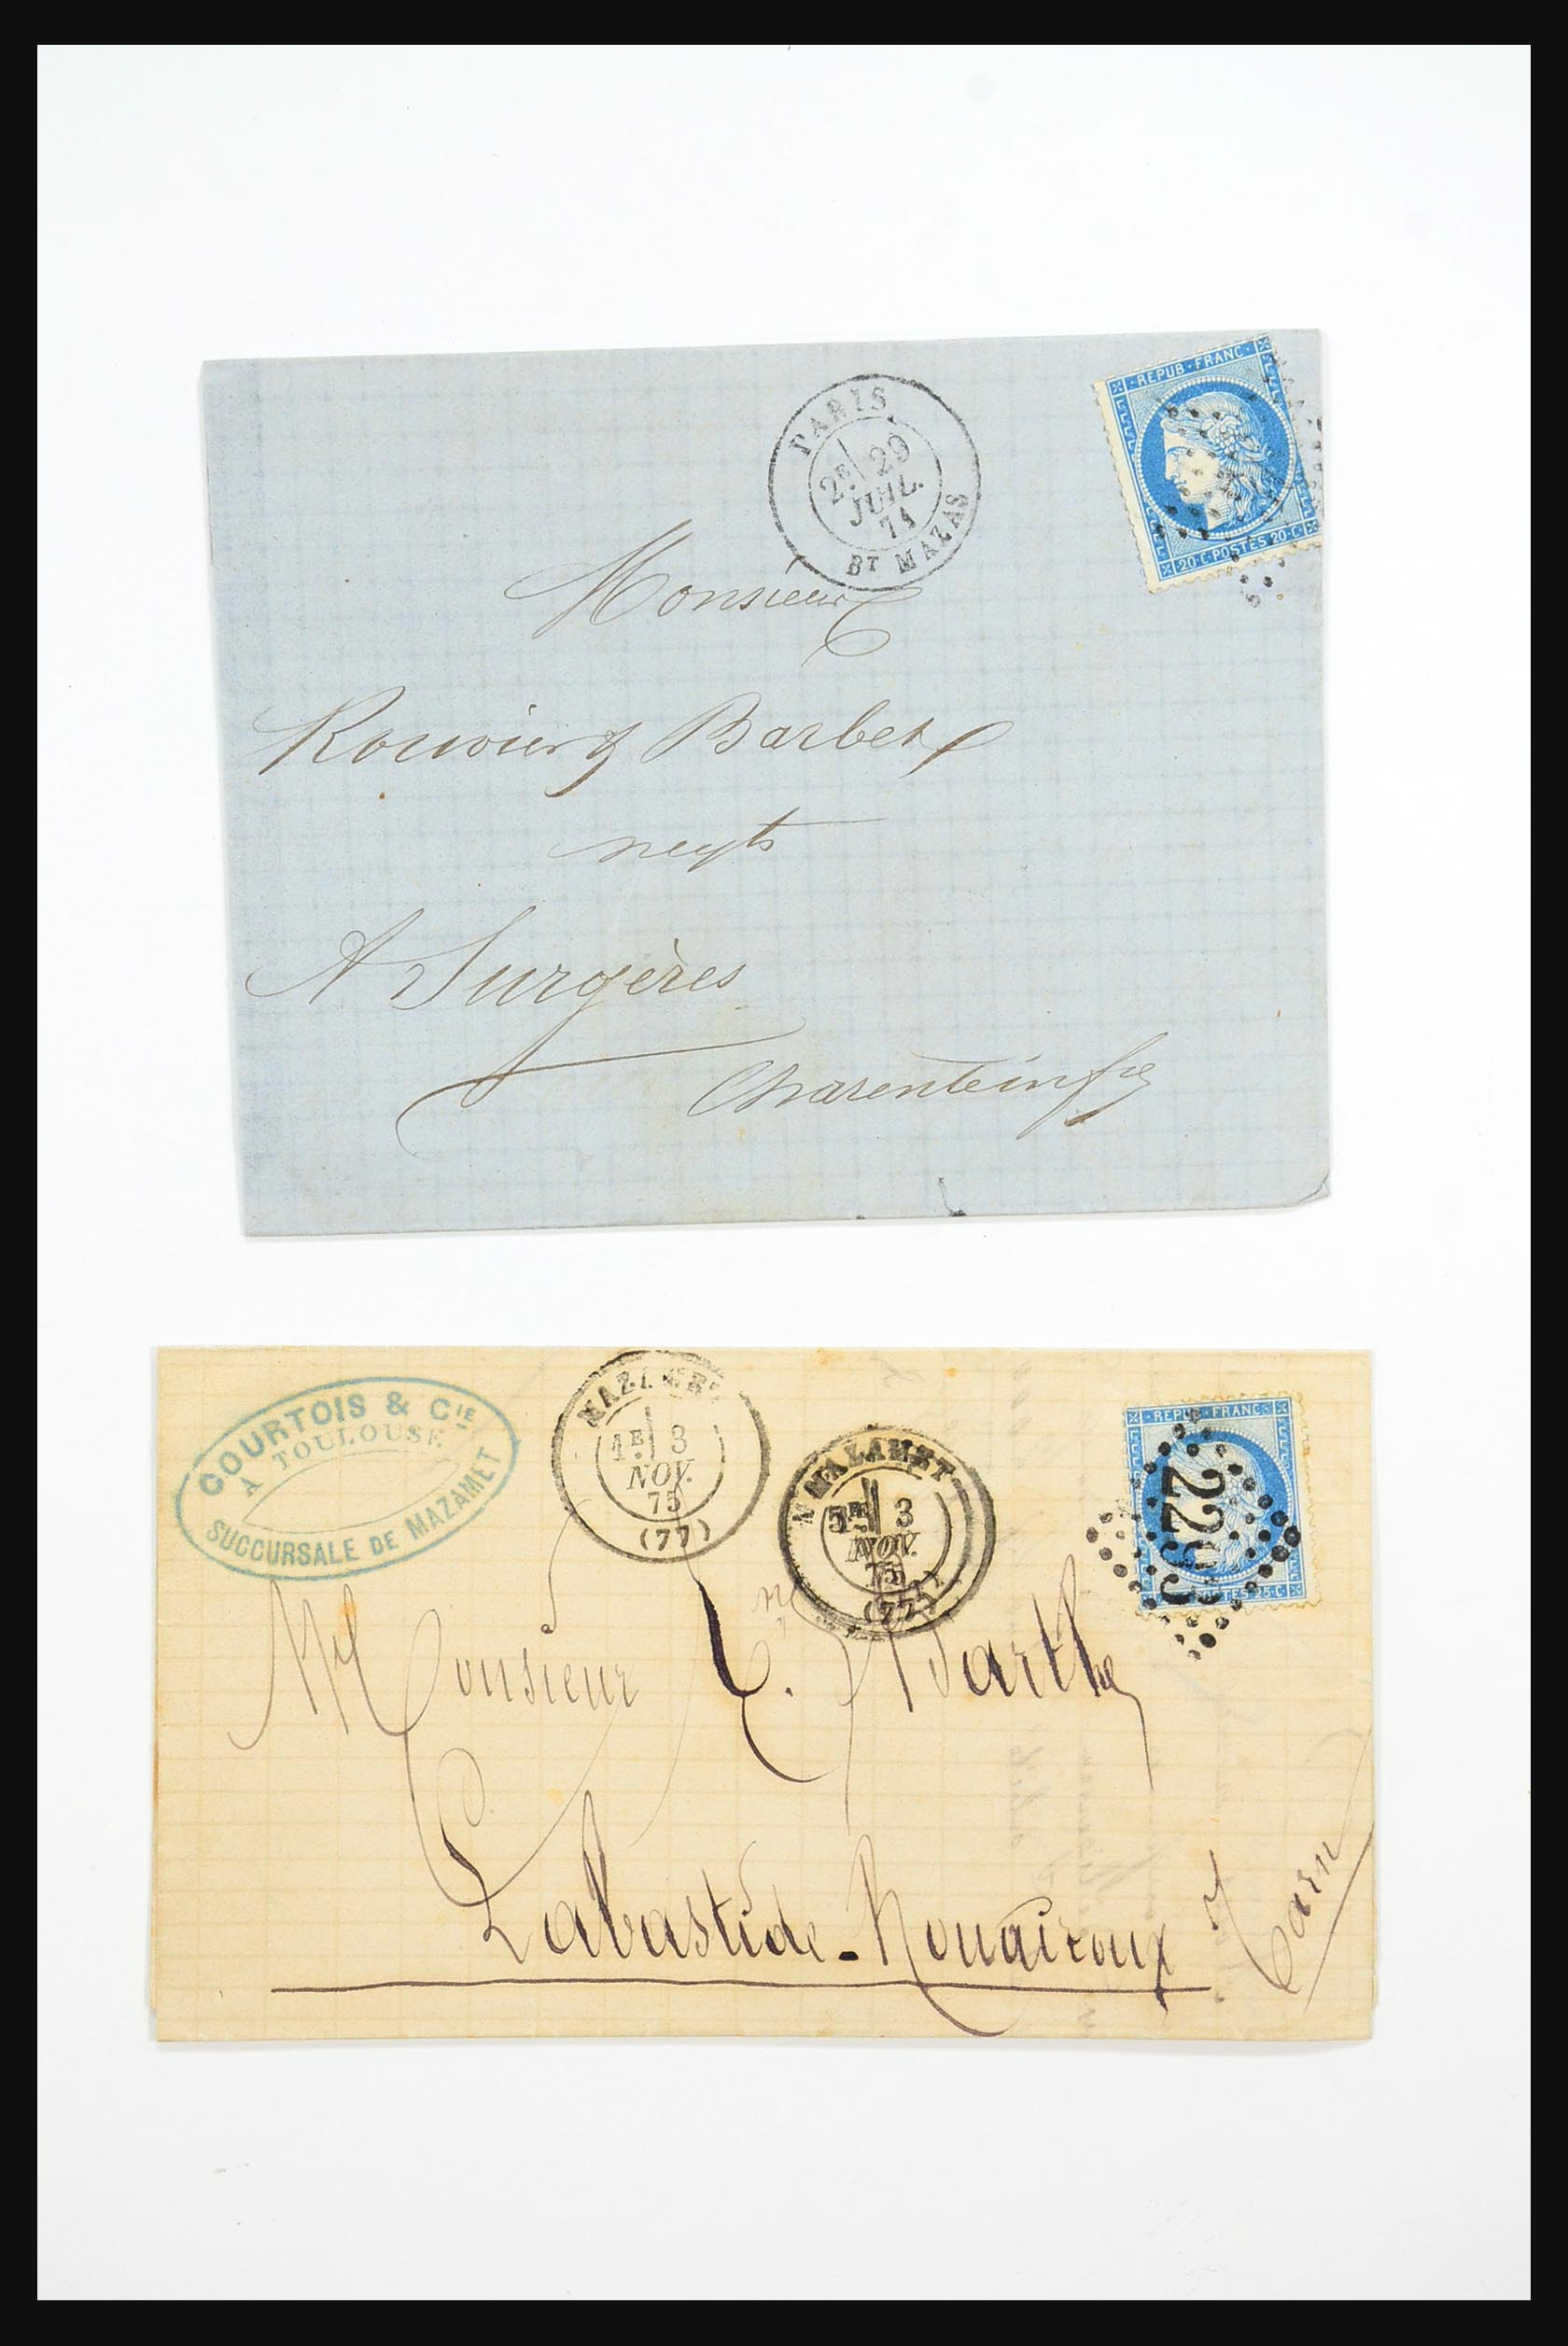 PARIS
2E 29
JUIL.
71
BT MAZAS
REPUB·FRANC·
20·C·POSTES·20·C·
Monsieur
Rouvier & Barbet
negts
A Surgères
Charente infre
COURTOIS & CIE
A TOULOUSE
SUCCURSALE DE MAZAMET
MAZAMET
1E 3
NOV.
75
(77)
MAZAMET
5E 3
NOV.
75
(77)
REPUB FRANC
2293
POSTES 25 C
Monsieur E. Barthe
Labastide-Rouairoux
Tarn